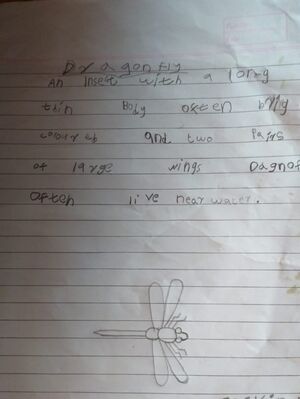 Dragonfly
An insect with a long
thin Body often brig
colour up and two Pairs
of large wings Dagnof
often live near water.